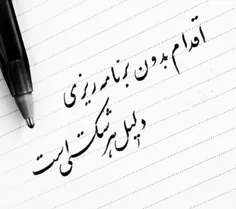 اقدام بدون برنامه ریزی
دلیل هر شکستی است